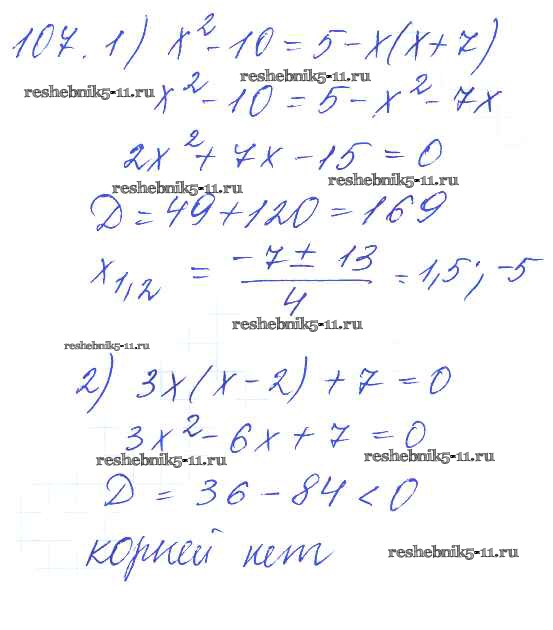 107. 1) x² - 10 = 5 - x(x + 7)
reshebnik5-11.ru
reshebnik5-11.ru x² - 10 = 5 - x² - 7x
2x² + 7x - 15 = 0
reshebnik5-11.ru reshebnik5-11.ru
D = 49 + 120 = 169
x₁,₂ = (-7 ± 13)/4 = 1,5; -5
reshebnik5-11.ru
reshebnik5-11.ru
2) 3x(x - 2) + 7 = 0
3x² - 6x + 7 = 0
reshebnik5-11.ru reshebnik5-11.ru
D = 36 - 84 < 0
корней нет reshebnik5-11.ru